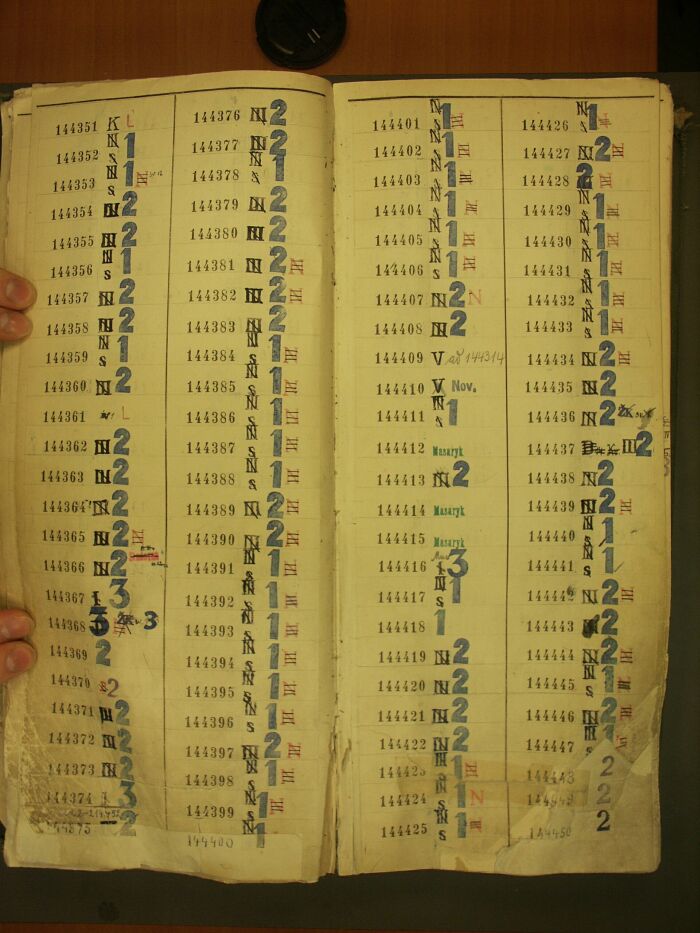 144351 K L
144352 N s 1
144353 N s 1 III
144354 N 2
144355 N 2
144356 N s 1
144357 N 2
144358 N 2
144359 N s 1
144360 N 2
144361 L
144362 N 2
144363 N 2
144364 N 2
144365 N 2 III
144366 N 2
144367 3
144368 3 3
144369 2
144370 s 2
144371 N 2
144372 N 2
144373 N 2
144374 3
144375 2
144376 N 2
144377 N 2
144378 N s 1
144379 N 2
144380 N 2
144381 N 2 III
144382 N 2 III
144383 N 2
144384 N s 1 III
144385 N s 1 III
144386 N s 1 III
144387 N s 1 III
144388 N s 1 III
144389 N 2 III
144390 N 2 III
144391 N s 1 III
144392 N s 1 III
144393 N s 1 III
144394 N s 1 III
144395 N s 1 III
144396 N s 1 III
144397 N 2 III
144398 N s 1 III
144399 N s 1 III
144400 N 1
144401 N s 1 III
144402 N s 1 III
144403 N s 1 III
144404 N s 1 III
144405 N s 1 III
144406 N s 1 III
144407 N 2 N
144408 N 2
144409 V ad 144314
144410 V Nov.
144411 N s 1
144412 Masaryk
144413 N 2
144414 Masaryk
144415 Masaryk
144416 3
144417 N s 1
144418 1
144419 N 2
144420 N 2
144421 N 2
144422 N 2
144423 N s 1 III
144424 N s 1 N
144425 N s 1 III
144426 N s 1
144427 N 2 III
144428 2 III
144429 N s 1 III
144430 N s 1 III
144431 N s 1 III
144432 N s 1 III
144433 N s 1 III
144434 N 2 III
144435 N 2
144436 N 2
144437 III 2
144438 N 2
144439 N 2 III
144440 N s 1
144441 N s 1
144442 N 2 III
144443 2
144444 N 2 III
144445 N s 1 III
144446 N 2 III
144447 N s 1
144448 2
144449 2
144450 2